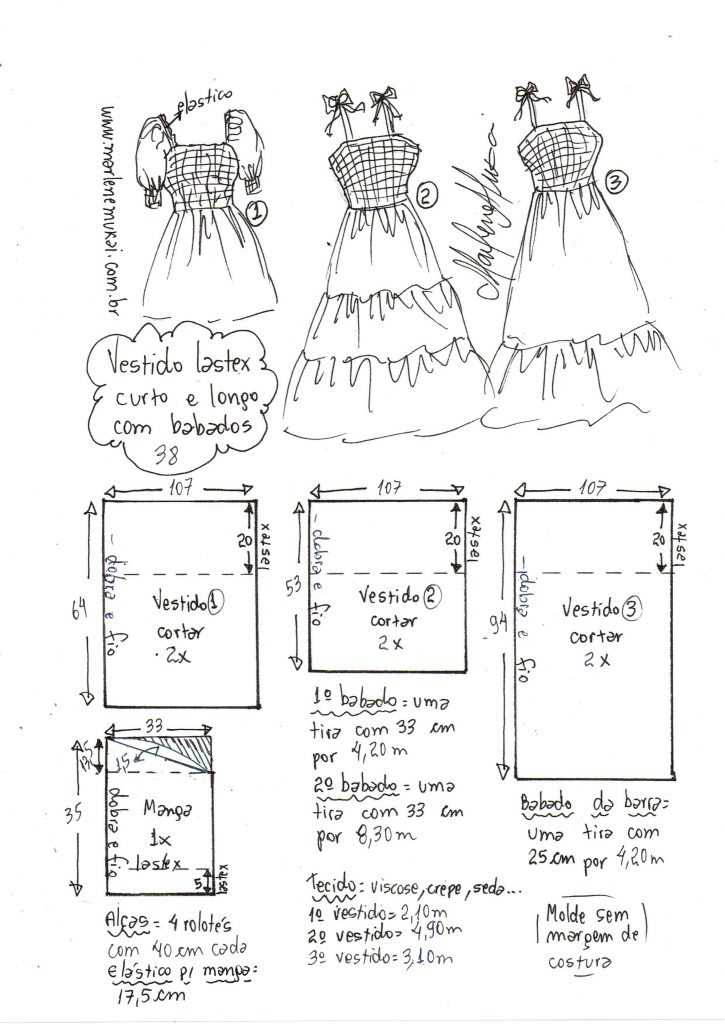 elastico
www.marlenemukai.com.br
1
2
3
Marlene Mukai
Vestido lastex
curto e longo
com babados
38
107
20
lastex
64
dobra e fio
Vestido 1
cortar
2x
107
20
lastex
53
dobra e fio
Vestido 2
cortar
2x
107
20
lastex
94
dobra e fio
Vestido 3
cortar
2x
33
15
35
dobra e fio
Manga
1x
lastex
5
lastex
Alças = 4 rolotês
com 40 cm cada
elástico p/ manga=
17,5 cm
1º babado = uma
tira com 33 cm
por 4,20 m
2º babado = uma
tira com 33 cm
por 8,30 m
Tecido = viscose, crepe, seda...
1º vestido = 2,10m
2º vestido = 4,90m
3º vestido = 3,10m
Babado da barra=
uma tira com
25 cm por 4,20m
Molde sem
margem de
costura